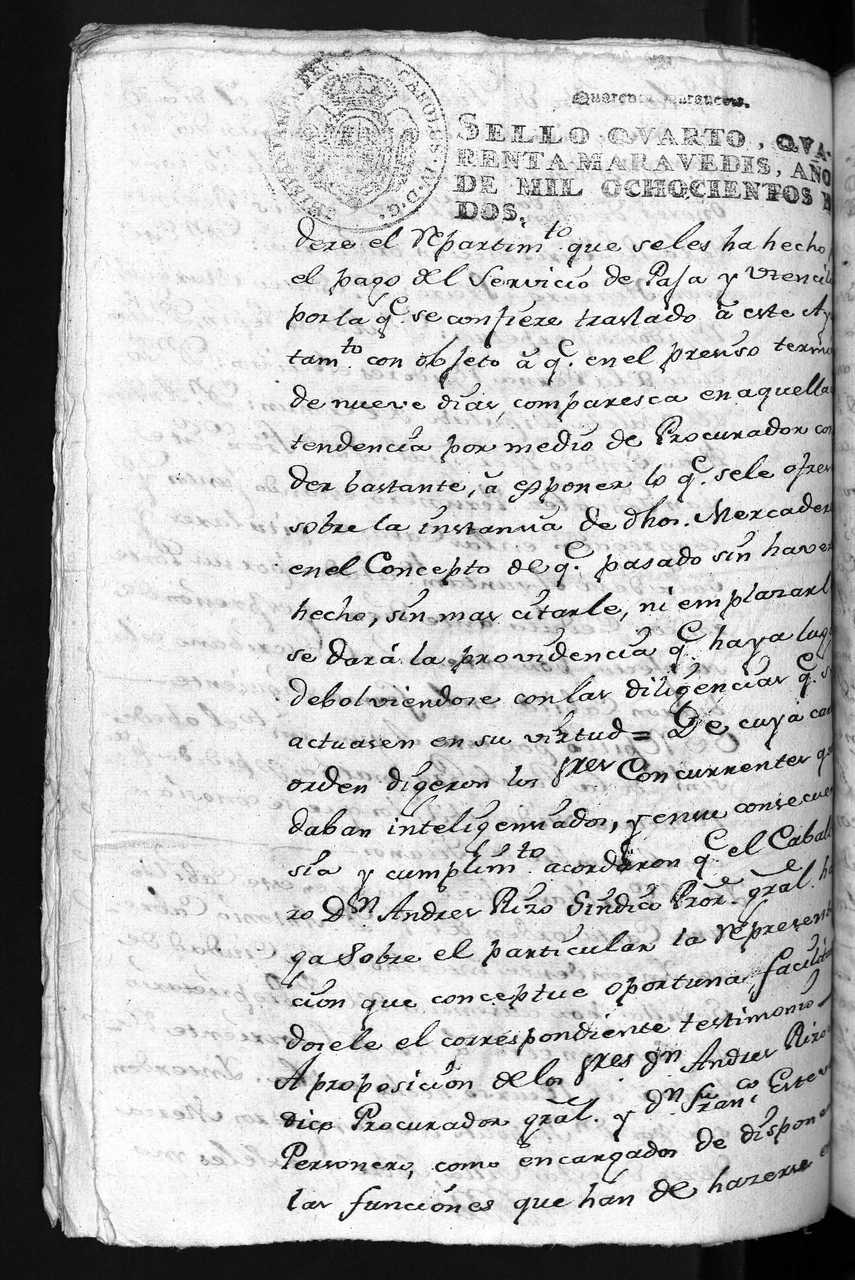 Quarenta maravedis.
CAROLUS IV D.G. HISPANIAR. REX
SELLO QVARTO, QVA-
RENTA MARAVEDIS, AÑO
DE MIL OCHOCIENTOS
DOS.
dere el Repartim.to que seles ha hecho
el pago del Servicio de Paja y Utencil
por la q.e se confiere traslado â este Ay
tam.to con objeto â q.e en el preciso termi
de nueve dias, comparesca en aquella
tendencia por medio de Procurador con
der bastante, â esponer lo q.e sele ofres
sobre la instancia de dhos. Mercadere
en el Concepto de q.e pasado sin haver
hecho, sin mas citarle, ni emplazarl
se dará la providencia q.e haya lug
debolviendose con las diligencias q.e s
actuasen en su virtud = De cuya
orden digeron los Sres Concurrentes q
daban inteligenciados, y en su consecuen
sia y cumplim.to acordaron q.e el Caball
ro D.n Andres Rizo Sindico Pror. gral. ha
ga sobre el particular la Represent
cion que conceptue oportuna, facilitan
dosele el correspondiente testimonio
A proposicion de los Sres D.n Andres Rizo
dico Procurador gral. y D.n Franc.co Esteve
Personero, como encargados de dispon
las funciones que han de hazerse e